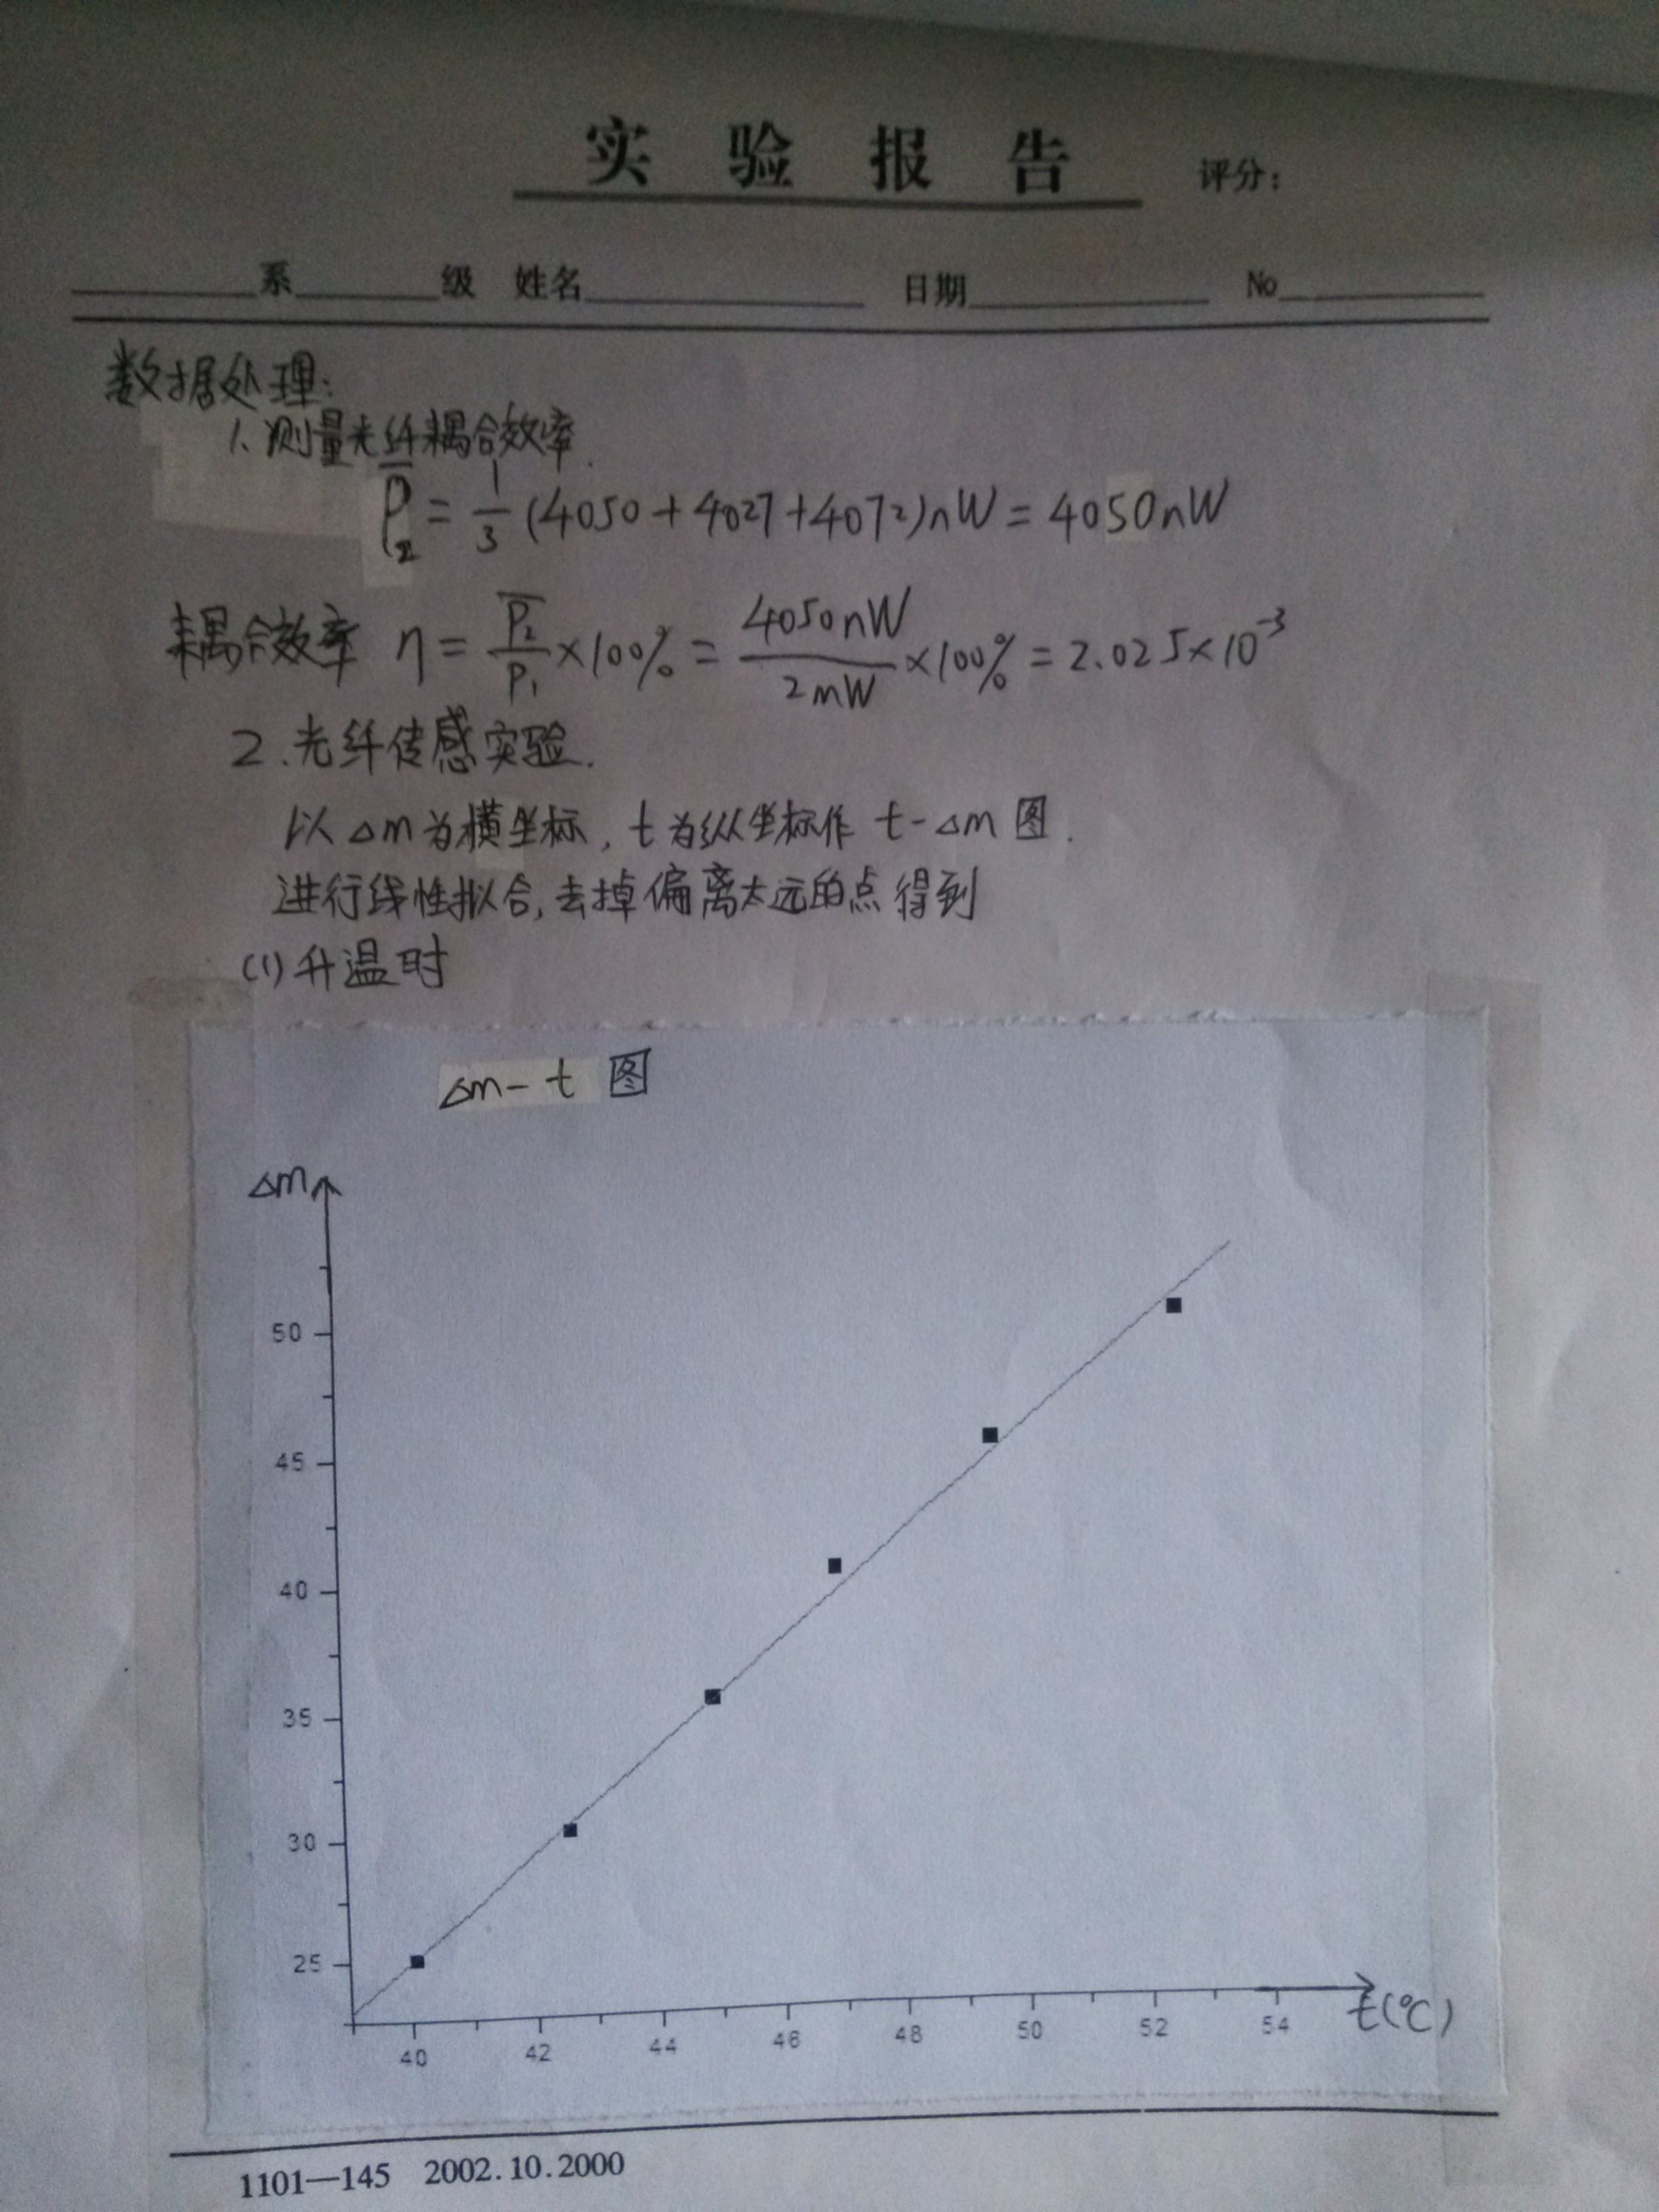 实验报告 评分:
系 级 姓名 日期 No
数据处理:
1. 测量光纤耦合效率.
P̄₂ = 1/3 (4050+4027+4072)nW = 4050nW
耦合效率 η = P̄₂/P₁ ×100% = 4050nW/2mW ×100% = 2.025×10⁻³
2. 光纤传感实验.
以△m为横坐标, t为纵坐标作 t-△m 图.
进行线性拟合, 去掉偏离太远的点得到
(1) 升温时
△m- t 图
△m
50
45
40
35
30
25
40 42 44 46 48 50 52 54 t(℃)
1101—145 2002.10.2000